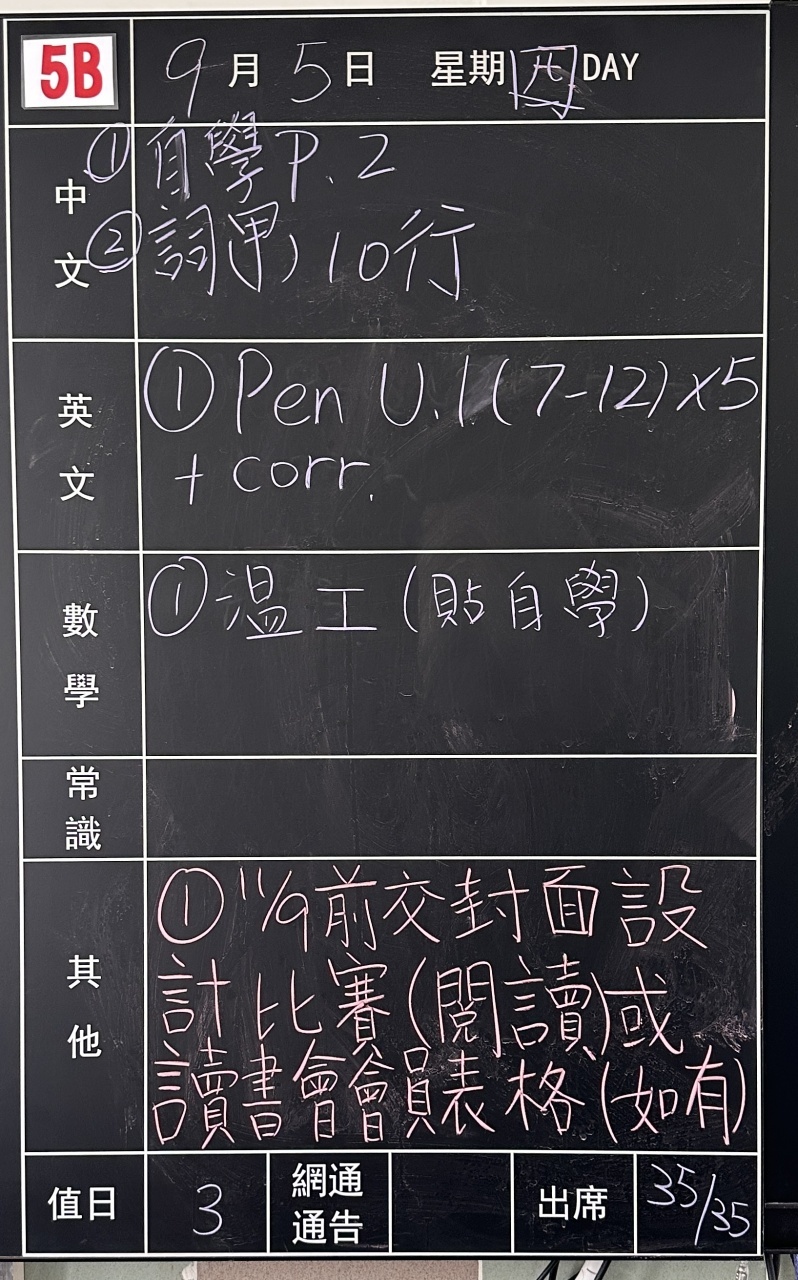 5B 9月5日 星期四DAY
中文 ①自學P.2
②詞(甲)10行
英文 ①Pen U.1(7-12)×5
+ corr.
數學 ①温工(貼自學)
常識
其他 ①11/9前交封面設
計比賽(閱讀)或
讀書會會員表格(如有)
值日 3 網通通告 出席 35/35